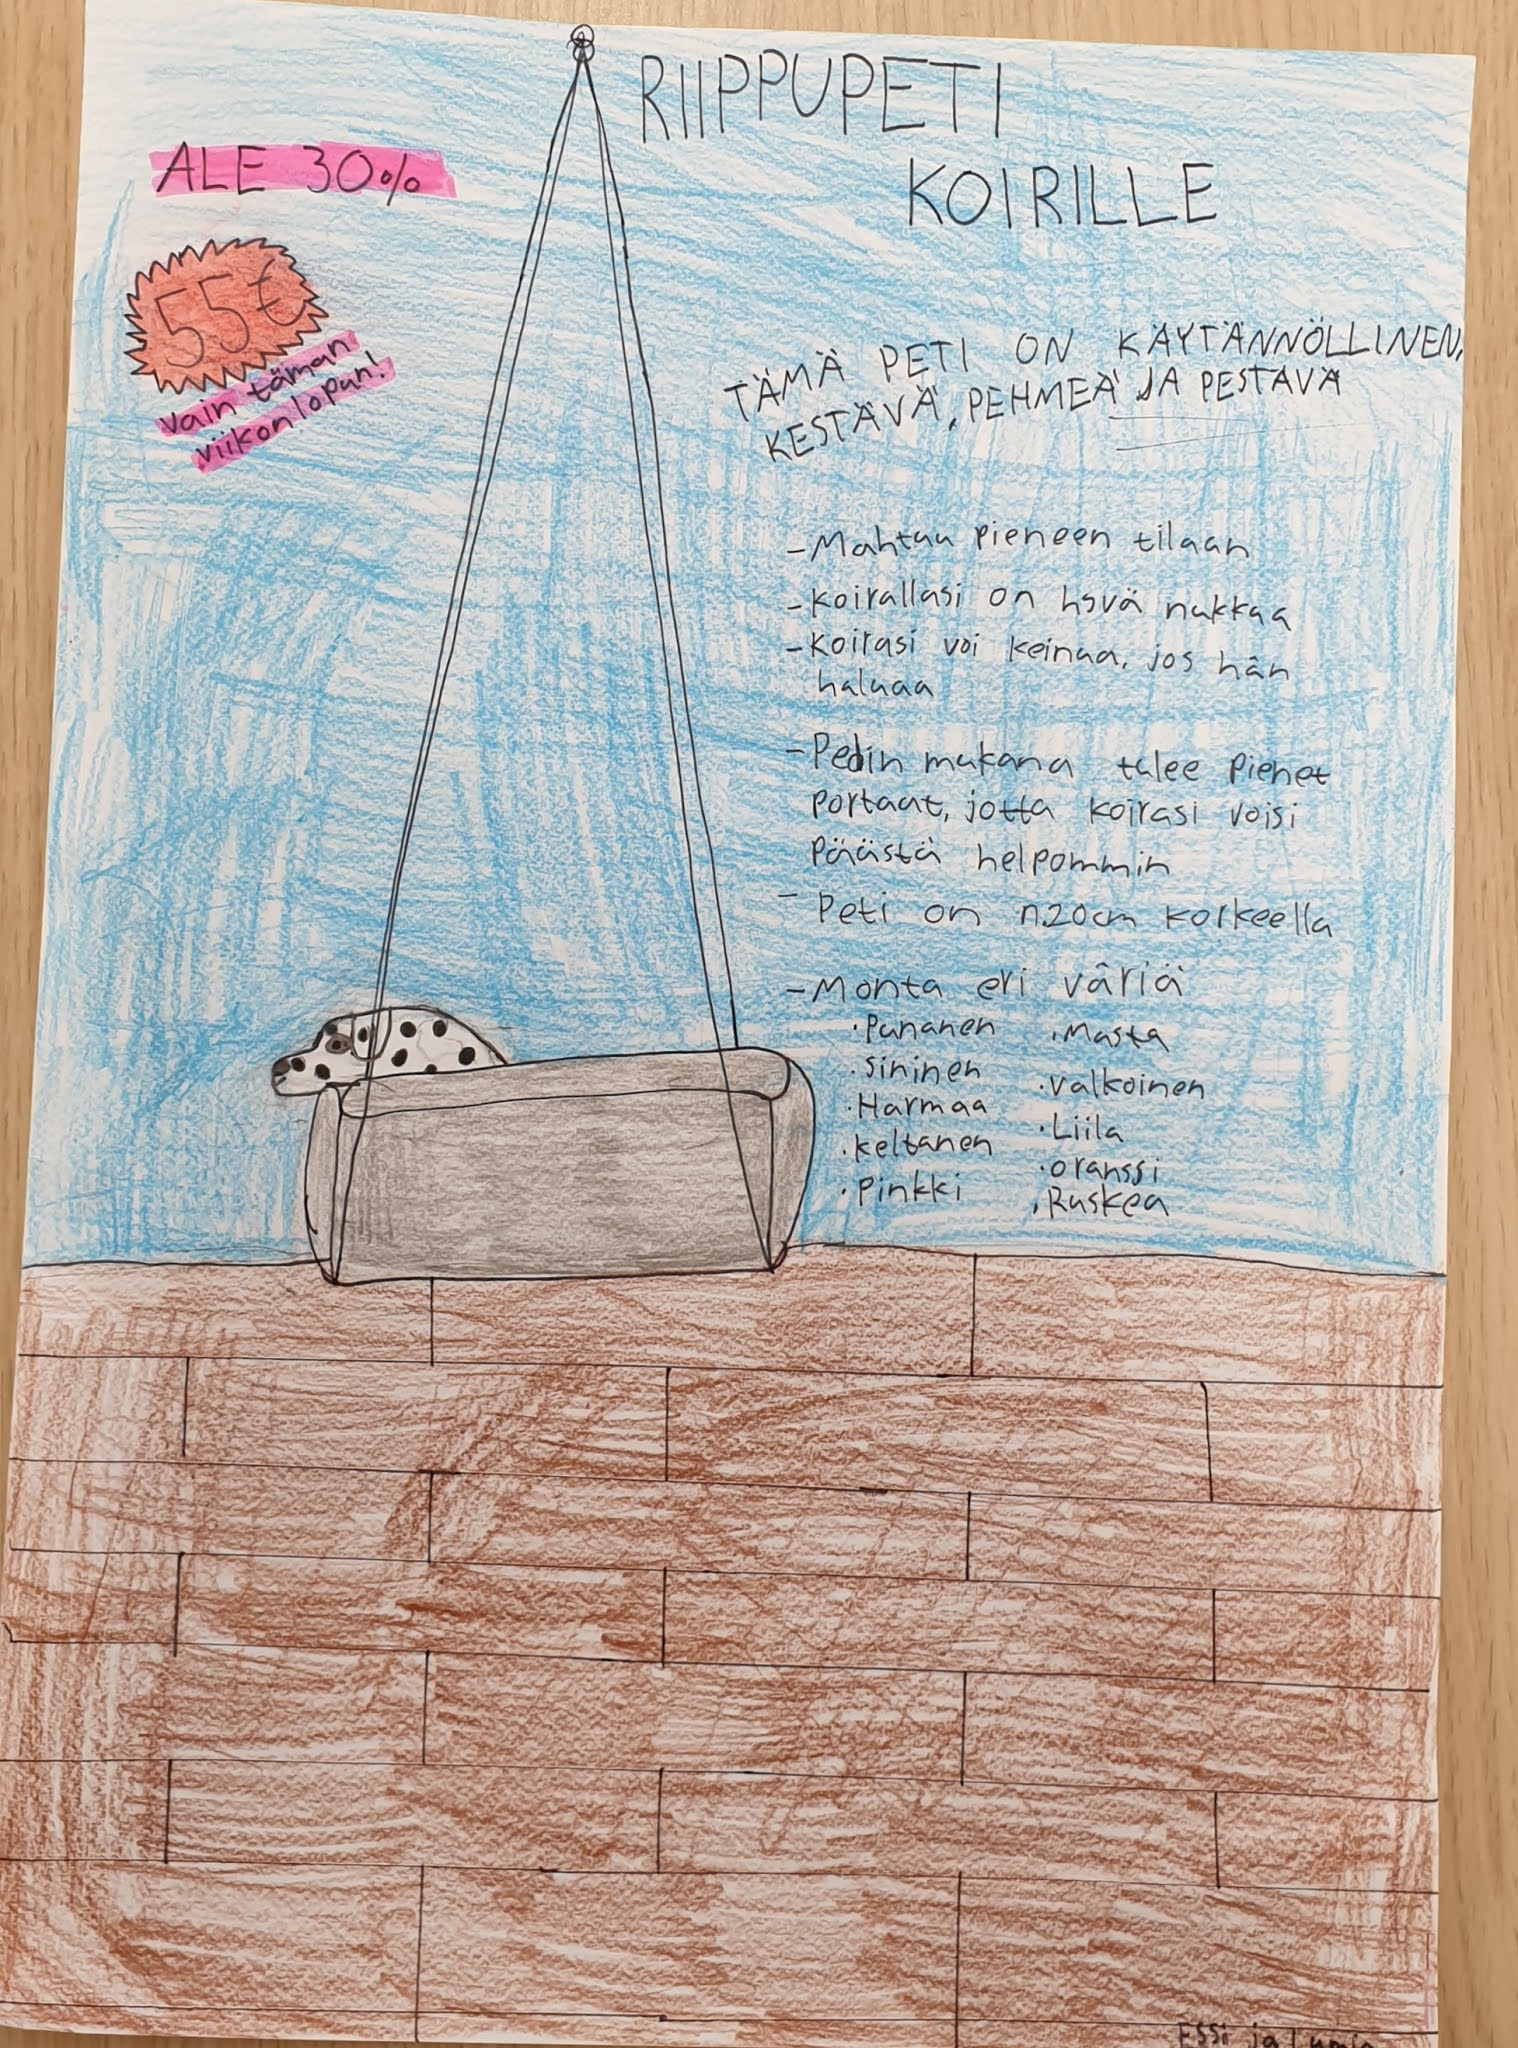 RIIPPUPETI
KOIRILLE
ALE 30%
55€
vain tämän
viikonlopun!
TÄMÄ PETI ON KÄYTÄNNÖLLINEN,
KESTÄVÄ, PEHMEÄ JA PESTÄVÄ
- Mahtuu pieneen tilaan
- Koirallasi on hyvä nukkua
- Koirasi voi keinua, jos hän
haluaa
- Pedin mukana tulee pienet
portaat, jotta koirasi voisi
päästä helpommin
- Peti on n.20cm korkeella
- Monta eri väriä
· Punanen
· Sininen
· Harmaa
· Keltanen
· Pinkki
· Musta
· Valkoinen
· Liila
· Oranssi
· Ruskea
Essi ja Lumia